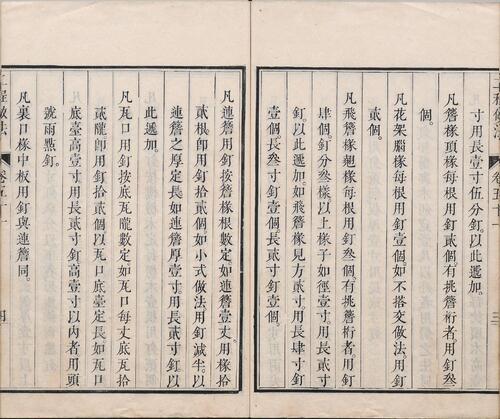 寸用長壹寸伍分釘以此遞加。
凡簷椽頂椽每根用釘貳個有挑簷桁者用釘叁
個。
凡花架腦椽每根用釘壹個如不搭交做法用釘
貳個。
凡飛簷椽翹椽每根用釘叁個有挑簷桁者用釘
肆個釘分叁樣以上椽子如徑壹寸用長貳寸
釘以此遞加如飛簷椽見方貳寸用長肆寸釘
壹個長叁寸釘壹個長貳寸釘壹個。
凡連簷用釘按簷椽根數定如連簷壹丈用椽拾
貳根卽用釘拾貳個如小式做法用釘減半以
連簷之厚定長如連簷厚壹寸用長貳寸釘以
此遞加。
凡瓦口用釘按底瓦隴數定如瓦口每丈底瓦拾
貳隴卽用釘拾貳個以瓦口底臺定長如瓦口
底臺高壹寸用長貳寸釘高壹寸以內者用頭
號雨點釘。
凡裏口椽中板用釘與連簷同。
工程做法 卷五十一 四